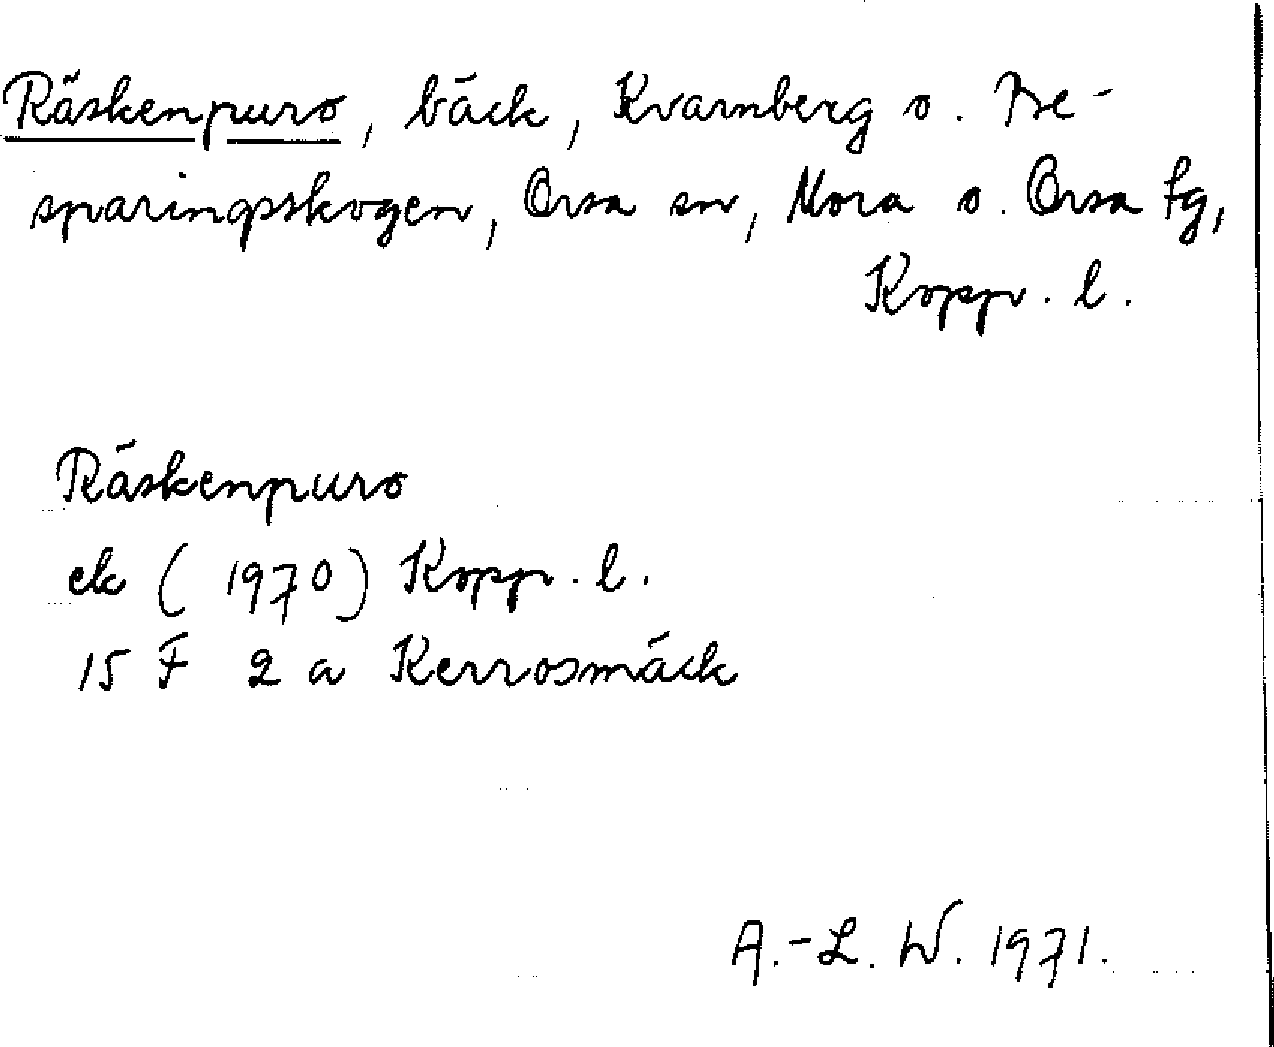 Räskenpuro, bäck, Kvarnberg o. Be-
sparingsskogen, Orsa sn, Mora o. Orsa tg,
Kopp. l.
Räskenpuro
ek (1970) Kopp. l.
15 F 2 a Kerrosmäck
A.-L. W. 1971.